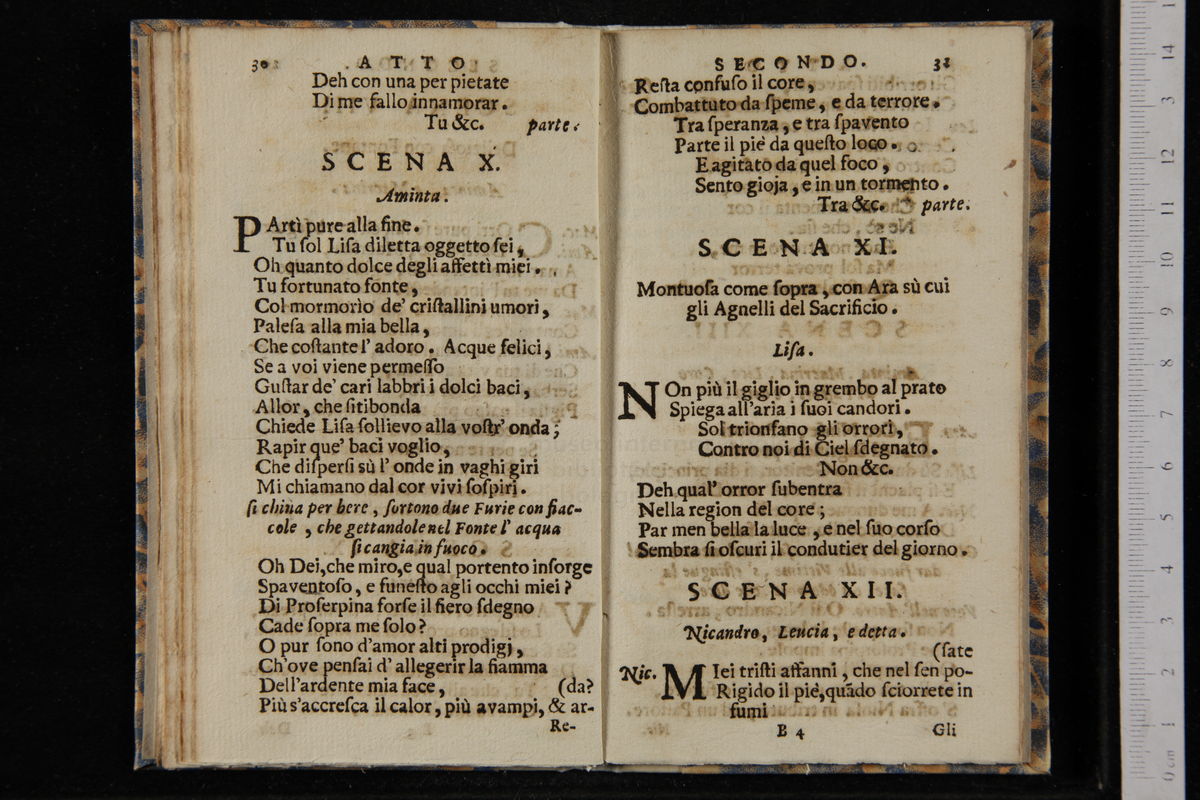 30 ATTO
Deh con una per pietate
Di me fallo innamorar.
Tu &c. parte.
SCENA X.
Aminta.
PArtì pure alla fine.
Tu ſol Liſa diletta oggetto ſei,
Oh quanto dolce degli affettì miei.
Tu fortunato fonte,
Col mormorìo de' criſtallini umori,
Paleſa alla mia bella,
Che coſtante l'adoro. Acque felici,
Se a voi viene permeſſo
Guſtar de' cari labbri i dolci baci,
Allor, che ſitibonda
Chiede Liſa ſollievo alla voſtr'onda;
Rapir que' baci voglio,
Che diſperſi sù l'onde in vaghi giri
Mi chiamano dal cor vivi ſoſpiri.
ſi china per bere, ſortono due Furie con fiac-
cole, che gettandole nel Fonte l'acqua
ſi cangia in fuoco.
Oh Dei, che miro, e qual portento inſorge
Spaventoſo, e funeſto agli occhi miei?
Di Proſerpina forſe il fiero ſdegno
Cade ſopra me ſolo?
O pur ſono d'amor alti prodigj,
Ch'ove penſai d'allegerir la fiamma
Dell'ardente mia face, (da?
Più s'accreſca il calor, più avampi, & ar-
Re-
SECONDO. 31
Reſta confuſo il core,
Combattuto da ſpeme, e da terrore.
Tra ſperanza, e tra ſpavento
Parte il piè da queſto loco.
E agitato da quel foco,
Sento gioja, e in un tormento.
Tra &c. parte.
SCENA XI.
Montuoſa come ſopra, con Ara sù cui
gli Agnelli del Sacrificio.
Liſa.
NOn più il giglio in grembo al prato
Spiega all'aria i ſuoi candori.
Sol trionfano gli orrori,
Contro noi di Ciel ſdegnato.
Non &c.
Deh qual' orror ſubentra
Nella region del core;
Par men bella la luce, e nel ſuo corſo
Sembra ſi oſcuri il condutier del giorno.
SCENA XII.
Nicandro, Leucia, e detta.
(ſate
Nic. MIei triſti affanni, che nel ſen po-
Rigido il piè, quãdo ſciorrete in
fumi
B 4 Gli